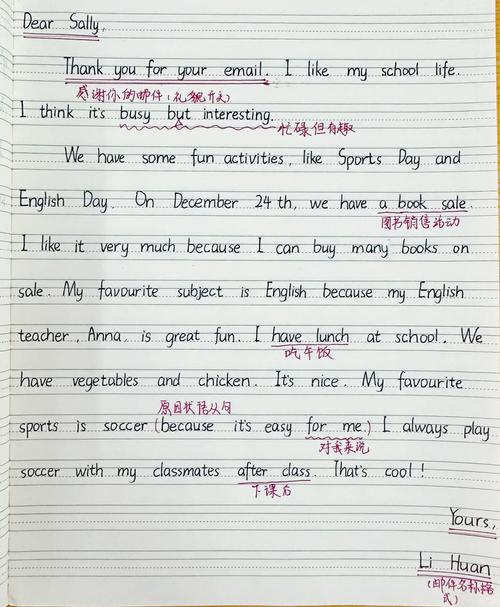 Dear Sally,
Thank you for your email. I like my school life.
感谢你的邮件(礼貌开头)
I think it's busy but interesting.
忙碌但有趣
We have some fun activities, like Sports Day and
English Day. On December 24th, we have a book sale.
图书销售活动
I like it very much because I can buy many books on
sale. My favourite subject is English because my English
teacher, Anna, is great fun. I have lunch at school. We
吃午饭
have vegetables and chicken. It's nice. My favourite
原因状语从句
sports is soccer (because it's easy for me.) I always play
对我来说
soccer with my classmates after class. That's cool!
下课后
Yours,
Li Huan
(邮件名称格
式)